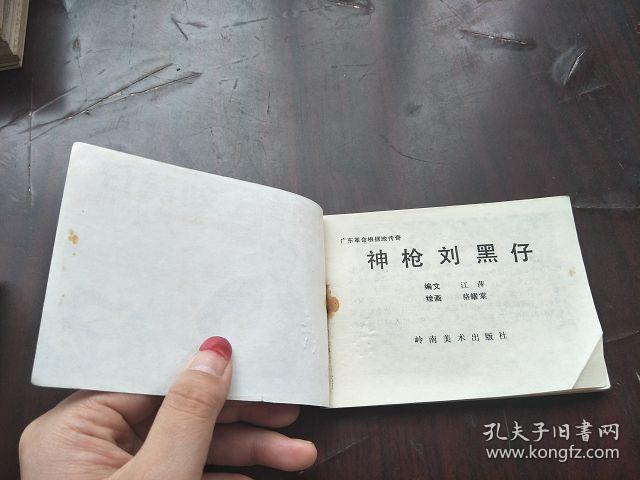 广东革命根据地传奇
神枪刘黑仔
编文 江萍
绘画 骆耀棠
岭南美术出版社
孔夫子旧书网
www.kongfz.com